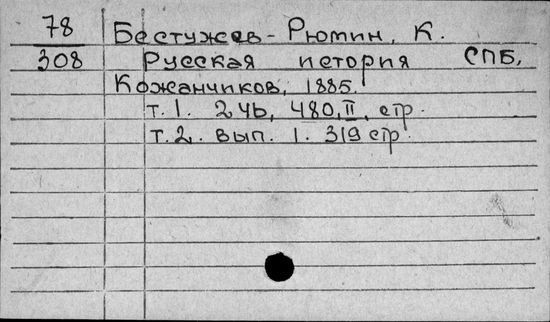 78 Бестужев-Рюмин, К.
308 Русская история СПБ,
Кожанчиков, 1885.
т. 1. 246, 480, II, стр.
т. 2. вып. 1. 319 стр.